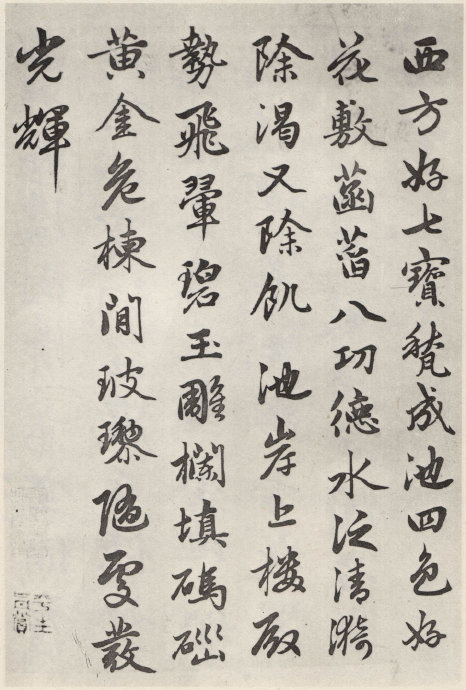 西方好七寶甃成池四色好
花敷菡萏八功德水泛清漪
除渴又除飢 池岸上樓殿
勢飛翬碧玉雕欄填碼碯
黃金危棟間玻瓈隨處發
光輝